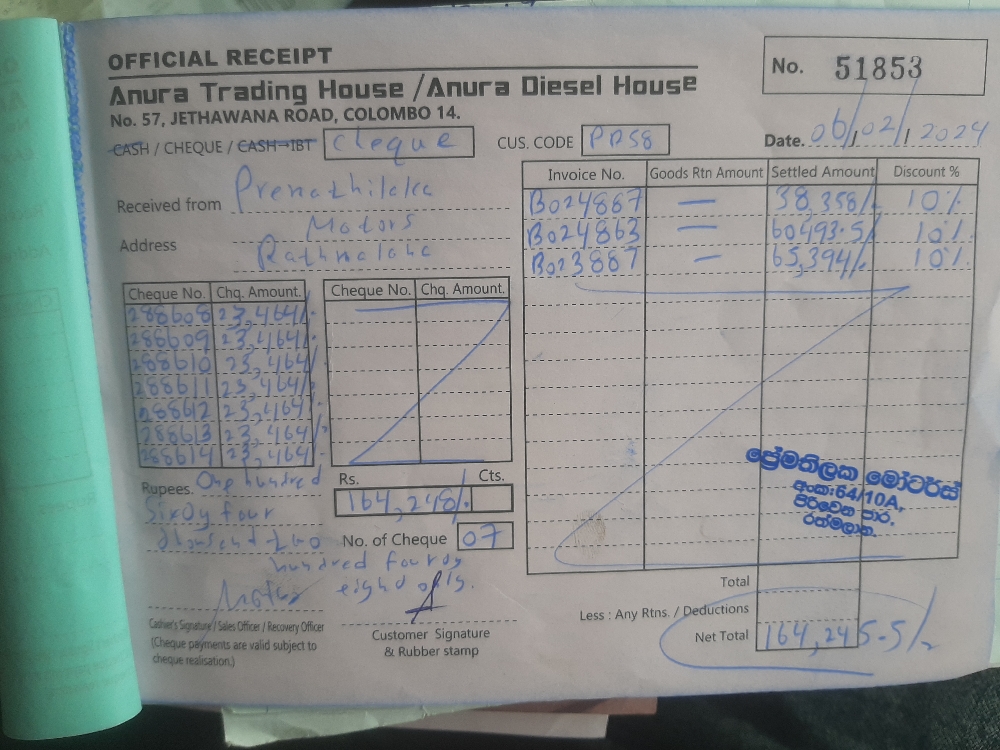 OFFICIAL RECEIPT
Anura Trading House /Anura Diesel House
No. 57, JETHAWANA ROAD, COLOMBO 14.
No. 51853
CASH / CHEQUE / CASH-IBT Cheque
CUS. CODE PP58
Date. 06/02/2024
Received from Premathilaka
Motors
Address Rathmalana
Invoice No. Goods Rtn Amount Settled Amount Discount %
B024887 — 38,358/- 10%
B024863 — 60493.5/- 10%
B023887 — 65,394/- 10%
Cheque No. Chq. Amount. Cheque No. Chq. Amount.
288608 23,464/-
288609 23,464/-
288610 23,464/-
288611 23,464/-
288612 23,464/-
288613 23,464/-
288614 23,464/-
Rupees. One hundred
Sixty four
thousand two
hundred fourty
eight only.
Rs. Cts.
164,248/-
No. of Cheque 07
ප්‍රේමතිලක මෝටර්ස්
අංක:64/10A,
පිරිවෙන පාර,
රත්මලාන.
Total
Less : Any Rtns. / Deductions
Net Total 164,245.5/-
Cashier's Signature / Sales Officer / Recovery Officer
(Cheque payments are valid subject to
cheque realisation.)
Customer Signature
& Rubber stamp